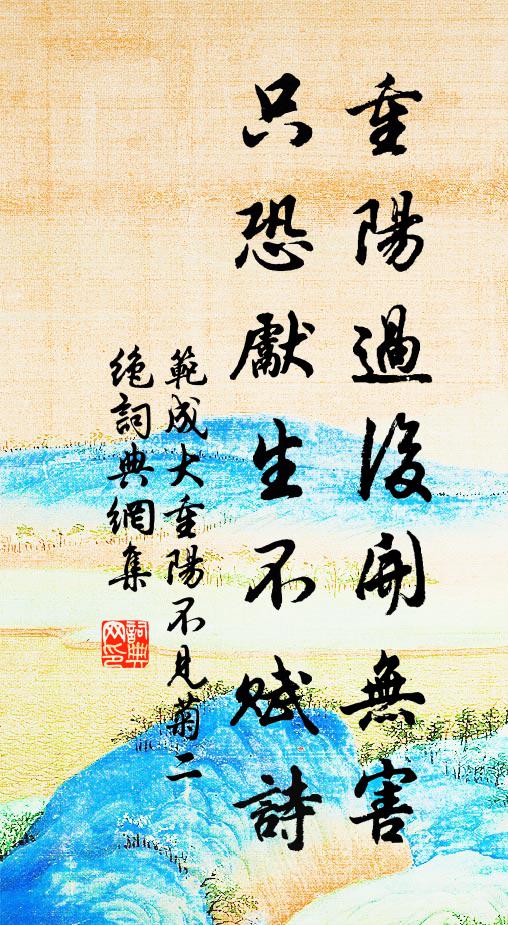 重陽過後開無害
只恐獻生不賦詩
範成大重陽不見菊二
絶詞典網集
詞典
网印